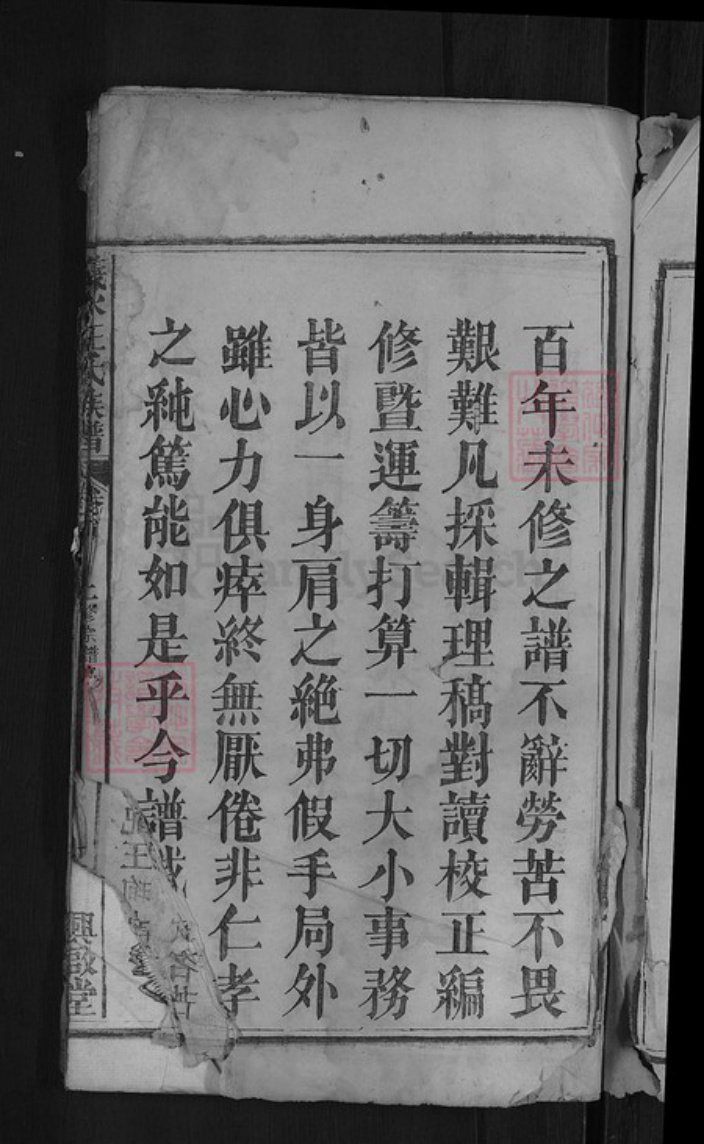 百年未修之譜不辭勞苦不畏
艱難凡採輯理稿對讀校正編
修暨運籌打算一切大小事務
皆以一身肩之絕弗假手局外
雖心力俱瘁終無厭倦非仁孝
之純篤能如是乎今譜
氏族譜
興啟堂